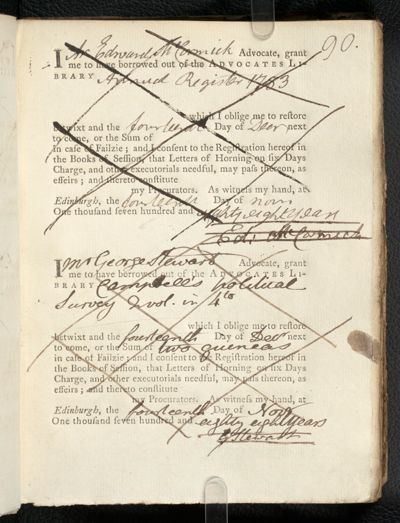 90.
I Mr Edward McCormick Advocate, grant
me to have borrowed out of the ADVOCATES LI-
BRARY Annual Register 1783
which I oblige me to restore
betwixt and the fourteenth Day of Decr next
to come, or the Sum of
in case of Failzie; and I consent to the Registration hereof in
the Books of Session, that Letters of Horning on six Days
Charge, and other executorials needful, may pass thereon, as
effeirs; and thereto constitute
my Procurators. As witness my hand, at
Edinburgh, the fourteenth Day of Novr
One thousand seven hundred and eighty eight years
Edw. McCormick
I Mr George Stewart Advocate, grant
me to have borrowed out of the ADVOCATES LI-
BRARY Campbell's political
Survey 2 vol. in 4to
which I oblige me to restore
betwixt and the fourteenth Day of Decr next
to come, or the Sum of two guineas
in case of Failzie; and I consent to the Registration hereof in
the Books of Session, that Letters of Horning on six Days
Charge, and other executorials needful, may pass thereon, as
effeirs; and thereto constitute
my Procurators. As witness my hand, at
Edinburgh, the fourteenth Day of Novr
One thousand seven hundred and eighty eight years
GStewart